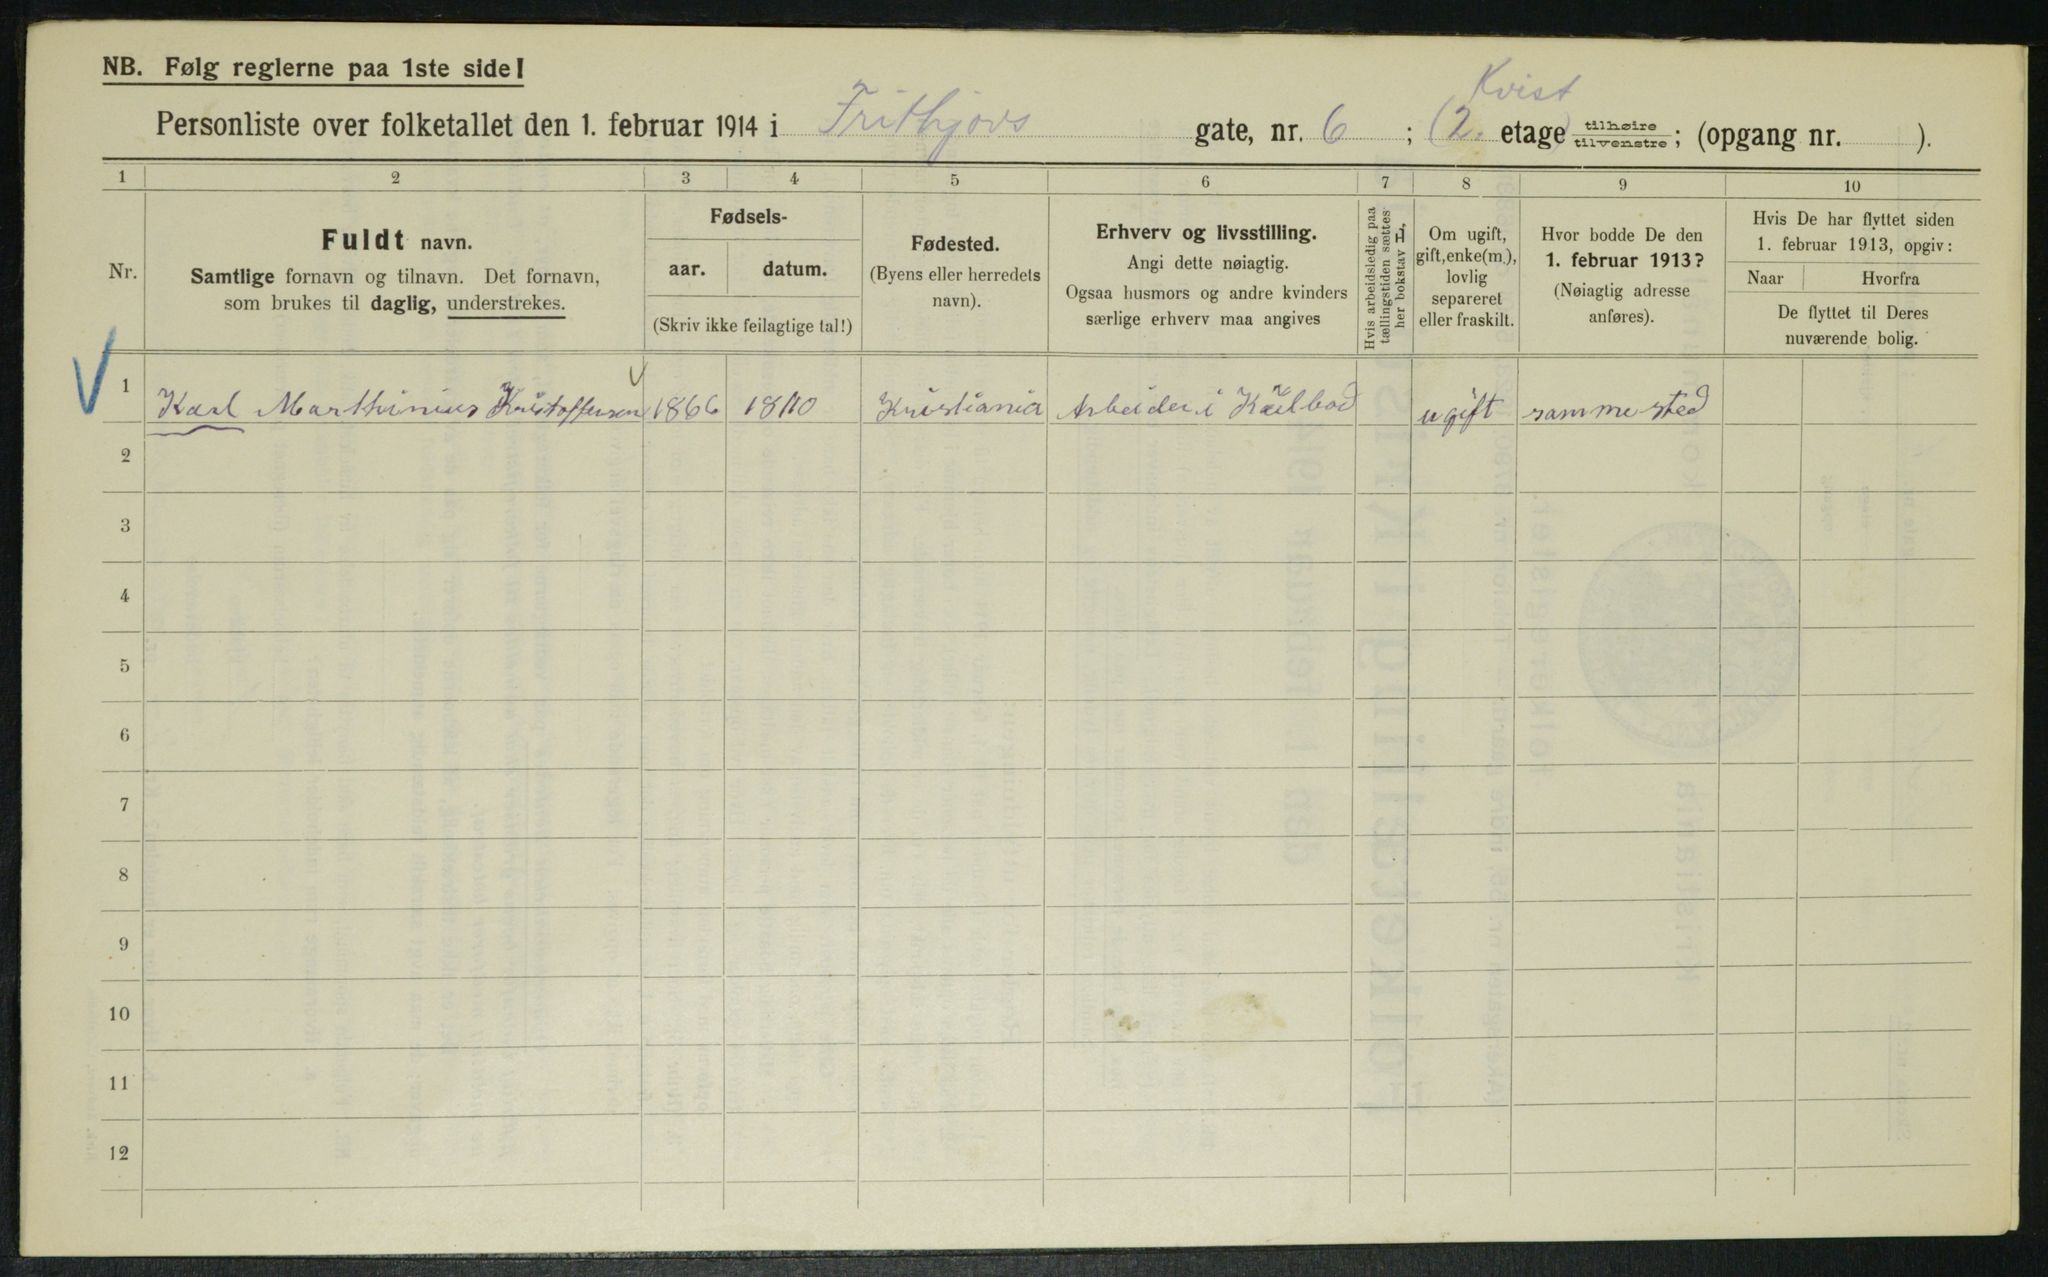 NB. Følg reglerne paa 1ste side!
Kvist
Personliste over folketallet den 1. februar 1914 i Frithjovs gate, nr. 6 ; (2. etage) tilhøire tilvenstre ; (opgang nr. ).
1 2 3 4 5 6 7 8 9 10
Nr.
Fuldt navn.
Samtlige fornavn og tilnavn. Det fornavn,
som brukes til daglig, understrekes.
Fødsels-
aar. datum.
(Skriv ikke feilagtige tal!)
Fødested.
(Byens eller herredets
navn).
Erhverv og livsstilling.
Angi dette nøiagtig.
Ogsaa husmors og andre kvinders
særlige erhverv maa angives
Hvis arbeidsledig paa
tællingstiden sættes
her bokstav H.
Om ugift,
gift, enke(m.),
lovlig
separeret
eller fraskilt.
Hvor bodde De den
1. februar 1913?
(Nøiagtig adresse
anføres).
Hvis De har flyttet siden
1. februar 1913, opgiv:
Naar Hvorfra
De flyttet til Deres
nuværende bolig.
1 Karl Marthinius Kristoffersen 1866 18/10 Kristiania Arbeider i Kulbod ugift samme sted
2
3
4
5
6
7
8
9
10
11
12